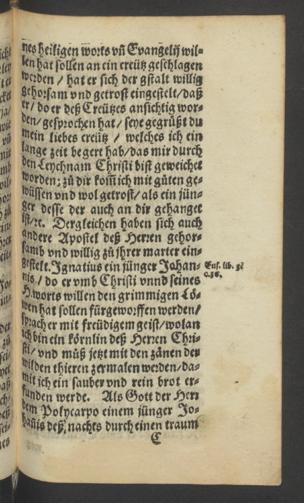 nes heiligen worts vñ Evangelij wil-
len hat sollen an ein creütz geschlagen
werden / hat er sich der gstalt willig
gehorsam vnd getrost eingstelt / daß
er / do er deß Creützes ansichtig wor-
den / gesprochen hat / seye gegrüßt du
mein liebes creütz / welches ich ein
lange zeit begert hab / das mir durch
den Leychnam Christi bist geweichet
worden; zů dir kom̃ ich mit gůten ge-
wüssen vnd wol getrost / als ein jün-
ger desse der auch an dir gehanget
ist / ꝛc. Dergleichen haben sich auch
andere Apostel deß Herren gehor-
samb vnd willig zů jhrer marter ein-
gestelt. Ignatius ein jünger Johan-
nis / do er vmb Christi vnnd seines
H. worts willen den grimmigen Lö-
wen hat sollen fürgeworffen werden /
sprach er mit freüdigem geist / wolan
ich bin ein körnlin deß Herren Chri-
sti / vnd můß jetzt mit den zänen der
wilden thieren zermalen werden / da-
mit ich ein sauber vnd rein brot er-
funden werde. Als Gott der Herr
dem Polycarpo einem jünger Jo-
hañis deß nachts durch einen traum
C
Eus. lib. 3.
c. 36.